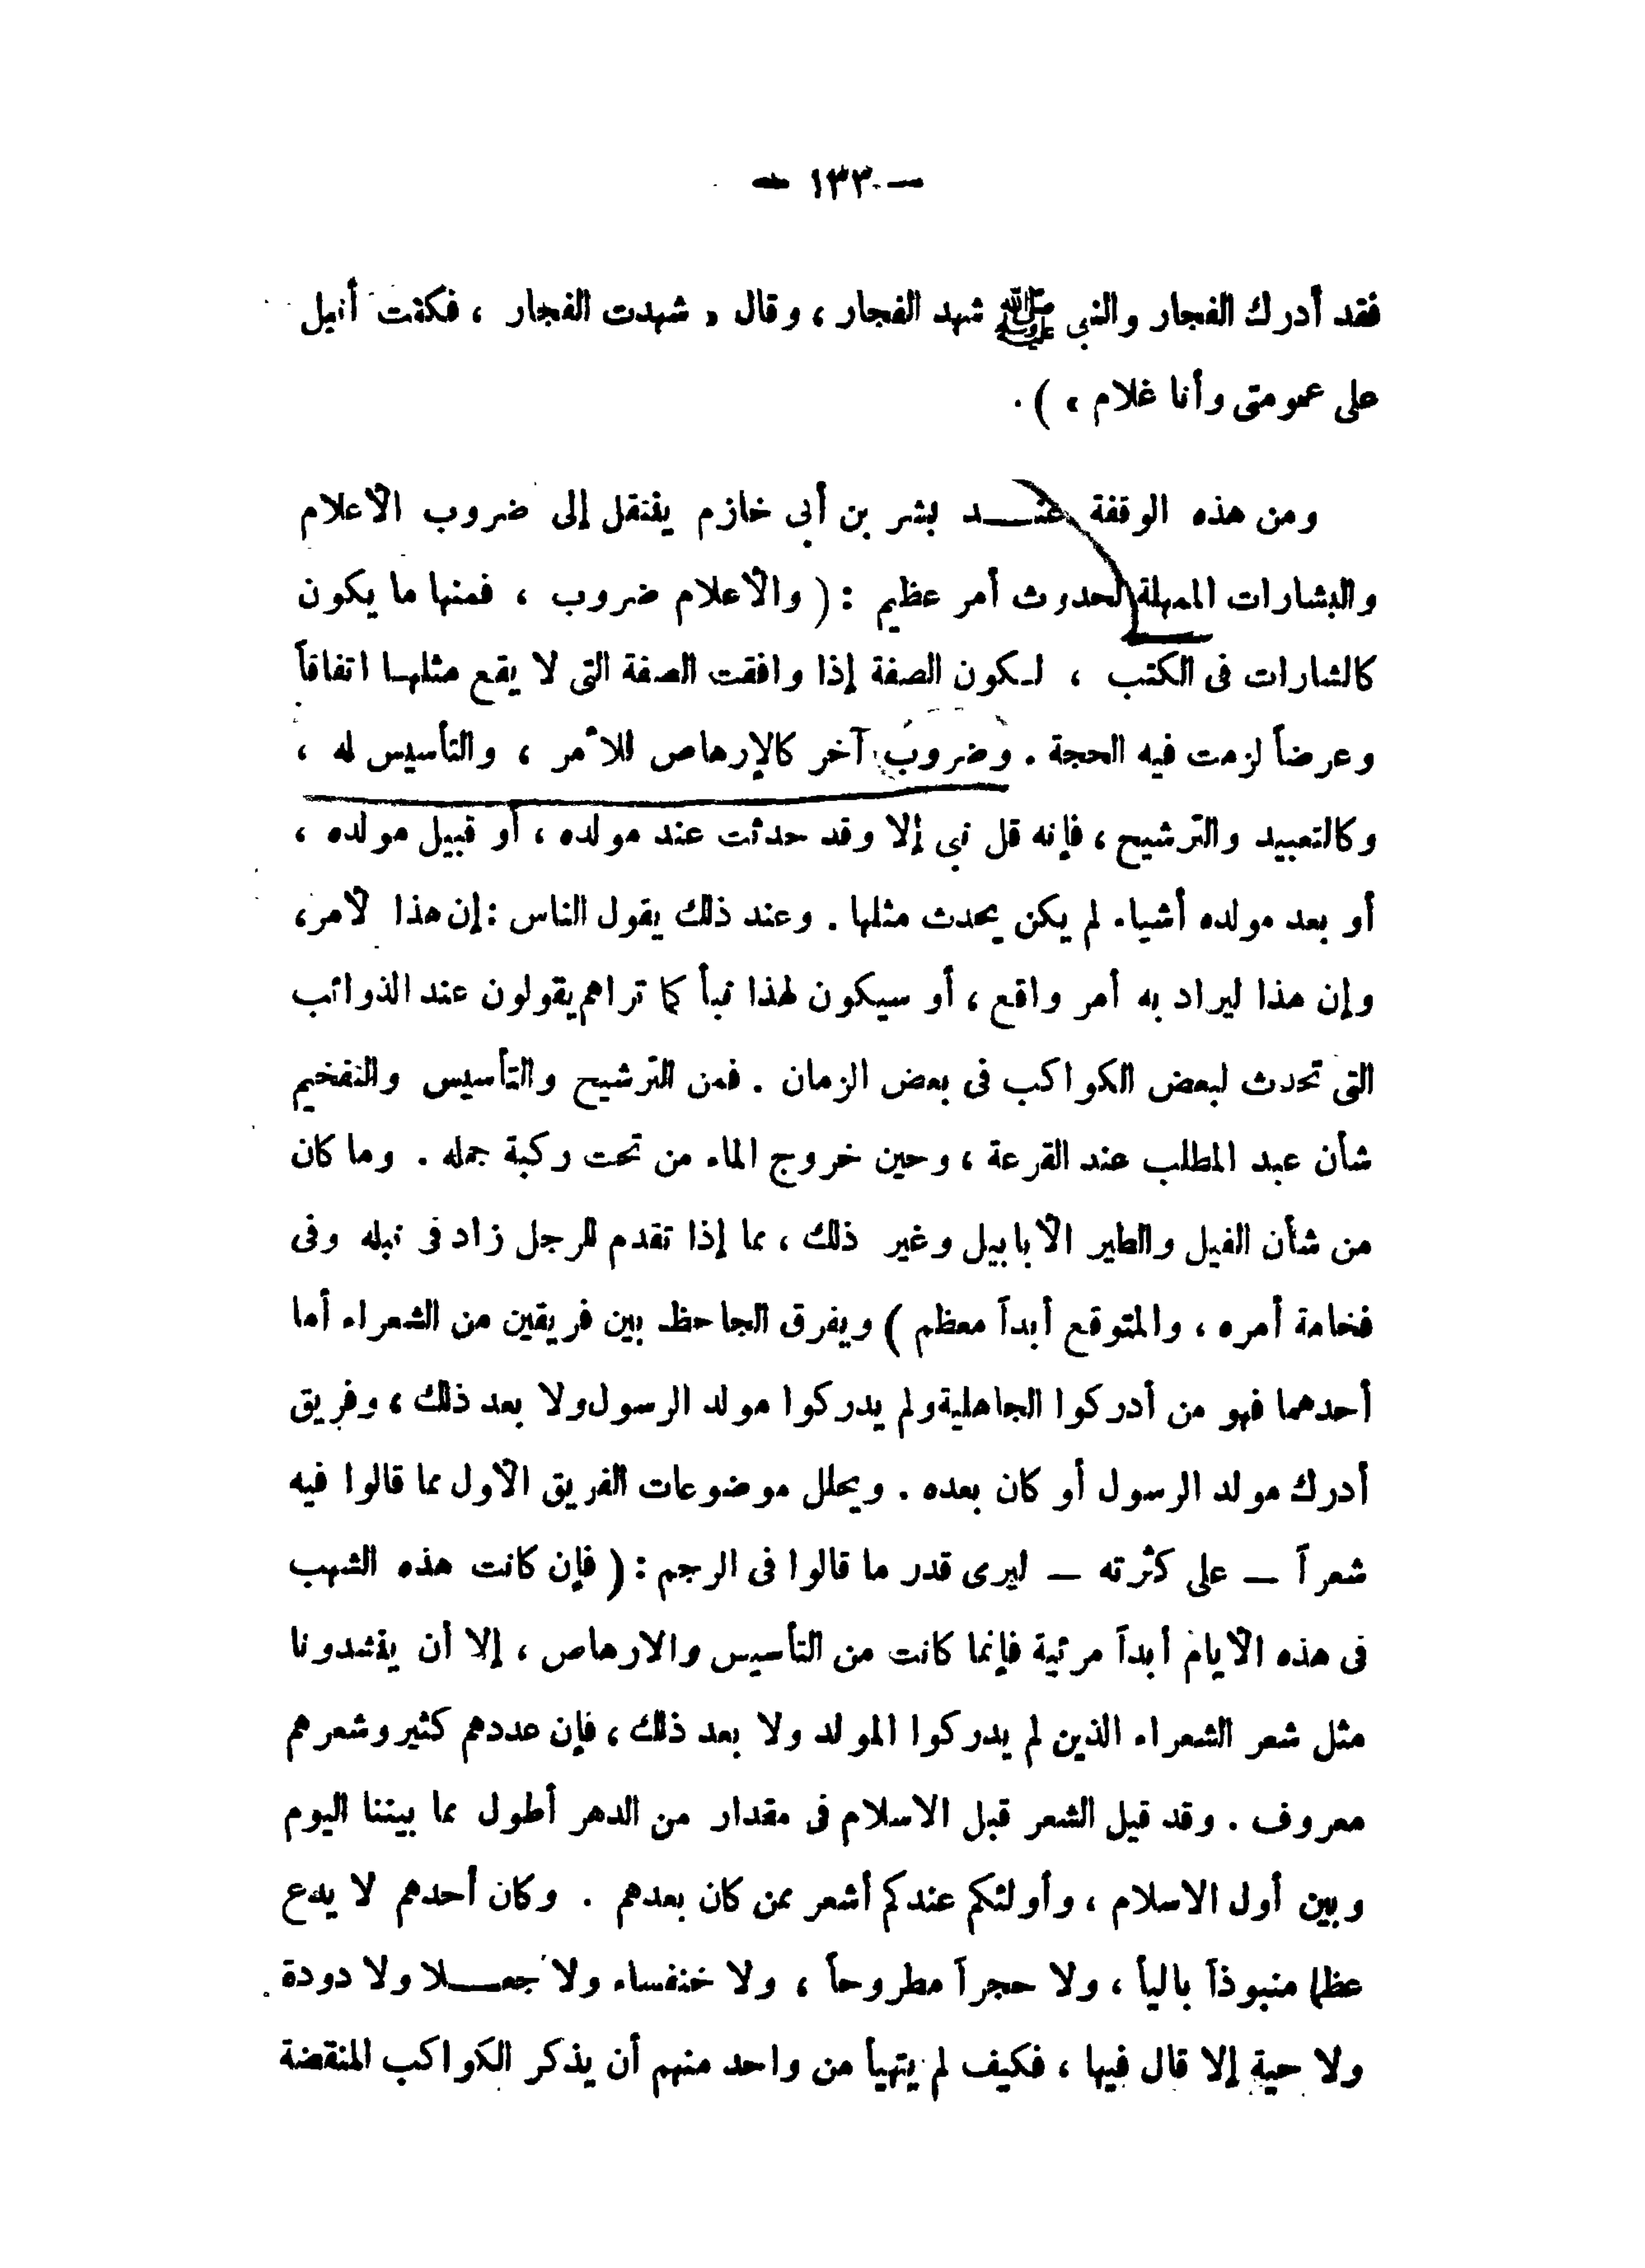 — ١٣٣ —
فقد أدرك الفجار والنبى ﷺ شهد الفجار ، وقال « شهدت الفجار ، فكنت أنبل
على عمومتى وأنا غلام » ) .
ومن هذه الوقفة عنـــد بشر بن أبى خازم ينتقل إلى ضروب الأعلام
والبشارات الممهلة لحدوث أمر عظيم : ( والأعلام ضروب ، فمنها ما يكون
كالشارات فى الكتب ، لـكون الصفة إذا وافقت الصفة التى لا يقع مثلهـا اتفاقاً
وعرضاً لزمت فيه الحجة . وضروب آخر كالإرهاص للأمر ، والتأسيس له ،
وكالتعبيد والترشيح ، فإنه قل نبى إلا وقد حدثت عند مولده ، أو قبيل مولده ،
أو بعد مولده أشياء لم يكن يحدث مثلها . وعند ذلك يقول الناس : إن هذا لأمر ،
وإن هذا ليراد به أمر واقع ، أو سيكون لهذا نبأ كما تراهم يقولون عند الذوائب
التى تحدث لبعض الكواكب فى بعض الزمان . فمن الترشيح والتأسيس والتفخيم
شأن عبد المطلب عند القرعة ، وحين خروج الماء من تحت ركبة جمله . وما كان
من شأن الفيل والطير الأبابيل وغير ذلك ، مما إذا تقدم للرجل زاد فى نبله وفى
فخامة أمره ، والمتوقع أبداً معظم ) ويفرق الجاحظ بين فريقين من الشعراء أما
أحدهما فهو من أدركوا الجاهلية ولم يدركوا مولد الرسول ولا بعد ذلك ، وفريق
أدرك مولد الرسول أو كان بعده . ويحلل موضوعات الفريق الأول مما قالوا فيه
شعراً — على كثرته — ليرى قدر ما قالوا فى الرجم : ( فإن كانت هذه الشهب
فى هذه الأيام أبداً مرئية فإنما كانت من التأسيس والارهاص ، إلا أن ينشدونا
مثل شعر الشعراء الذين لم يدركوا المولد ولا بعد ذلك ، فإن عددهم كثير وشعرهم
معروف . وقد قيل الشعر قبل الاسلام فى مقدار من الدهر أطول مما بيننا اليوم
وبين أول الاسلام ، وأولئكم عندكم أشعر ممن كان بعدهم . وكان أحدهم لا يدع
عظما منبوذاً بالياً ، ولا حجراً مطروحاً ، ولا خنفساء ولا جعـــلا ولا دودة
ولا حية إلا قال فيها ، فكيف لم يتهيأ من واحد منهم أن يذكر الكواكب المنقضة